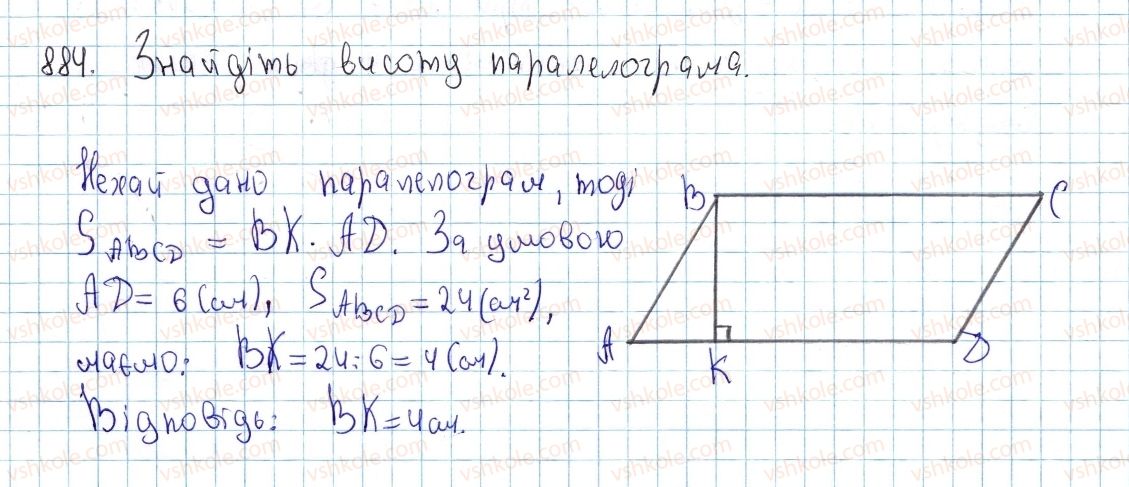 884. Знайдіть висоту паралелограма.
Нехай дано паралелограм, тоді
S ABCD = BK · AD. За умовою
AD = 6 (см), S ABCD = 24 (см²),
маємо: BK = 24 : 6 = 4 (см).
Відповідь: BK = 4 см.
B C
A K D
vshkole.com